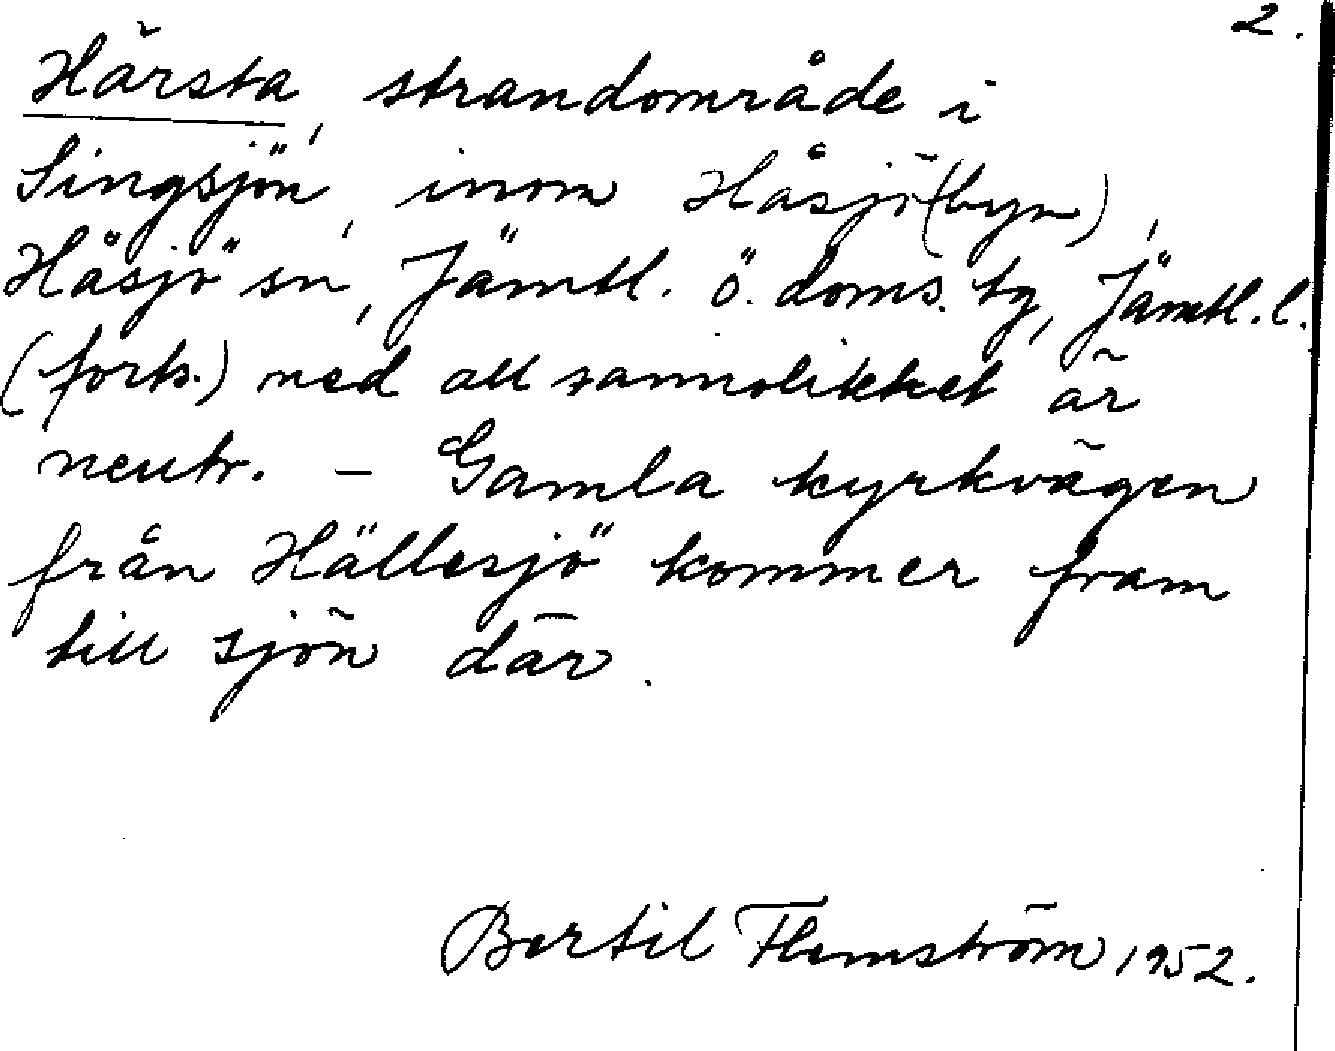 2.
Härsta, strandområde i
Singsjön, inom Håsjö (byn),
Håsjö sn, Jämtl. ö. doms. tg, Jämtl. l.
(forts.) med all sannolikhet är
neutr. – Gamla kyrkvägen
från Hällesjö kommer fram
till sjön där.
Bertil Flemström 1952.